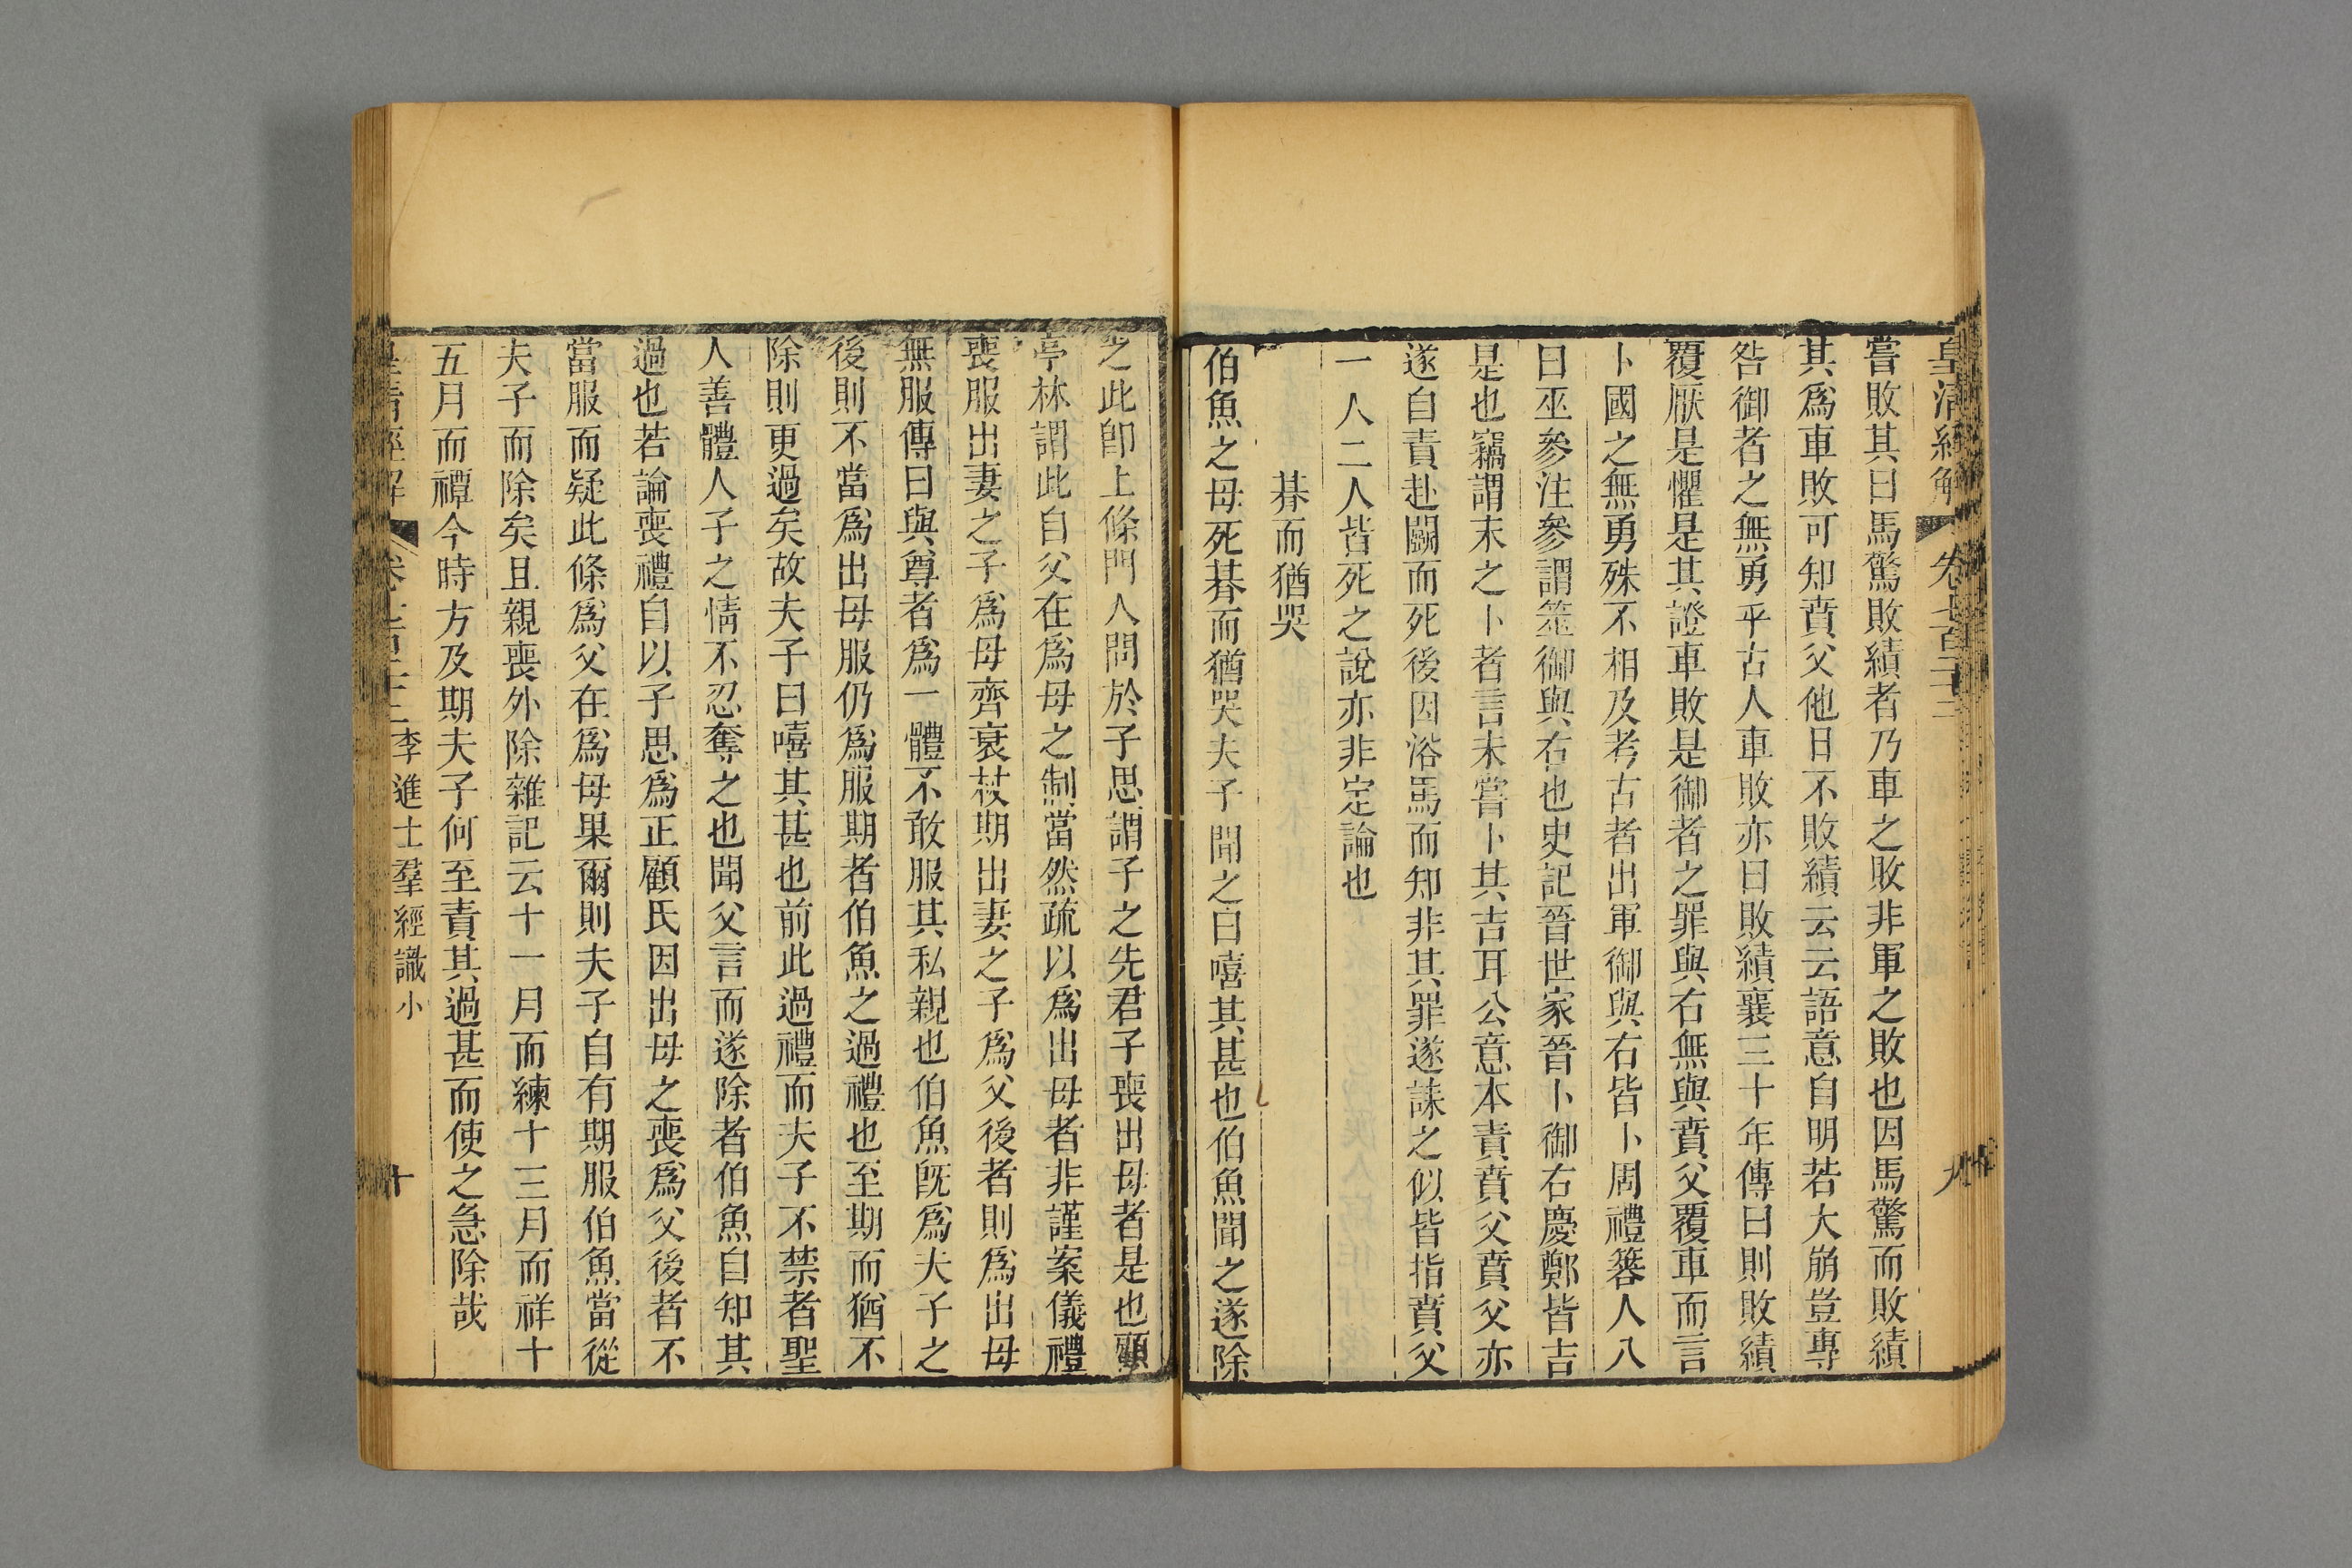 皇清經解 卷七百二十二 九
嘗敗其曰馬驚敗績者乃車之敗非軍之敗也因馬驚而敗績
其爲車敗可知賁父他日不敗績云云語意自明若大崩豈專
咎御者之無勇乎古人車敗亦曰敗績襄三十年傳曰則敗績
覆厭是懼是其證車敗是御者之罪與右無與賁父覆車而言
卜國之無勇殊不相及考古者出軍御與右皆卜周禮簭人八
曰巫參注參謂筮御與右也史記晉世家晉卜御右慶鄭皆吉
是也竊謂末之卜者言未嘗卜其吉耳公意本責賁父賁父亦
遂自責赴鬬而死後因浴馬而知非其罪遂誄之似皆指賁父
一人二人皆死之說亦非定論也
朞而猶哭
伯魚之母死朞而猶哭夫子聞之曰嘻其甚也伯魚聞之遂除
之此卽上條門人問於子思謂子之先君子喪出母者是也顧
亭林謂此自父在爲母之制當然疏以爲出母者非謹案儀禮
喪服出妻之子爲母齊衰杖期出妻之子爲父後者則爲出母
無服傳曰與尊者爲一體不敢服其私親也伯魚旣爲夫子之
後則不當爲出母服仍爲服期者伯魚之過禮也至期而猶不
除則更過矣故夫子曰嘻其甚也前此過禮而夫子不禁者聖
人善體人子之情不忍奪之也聞父言而遂除者伯魚自知其
過也若論喪禮自以子思爲正顧氏因出母之喪爲父後者不
當服而疑此條爲父在爲母果爾則夫子自有期服伯魚當從
夫子而除矣且親喪外除雜記云十一月而練十三月而祥十
五月而禫今時方及期夫子何至責其過甚而使之急除哉
皇清經解 卷七百二十二 李進士羣經識小 十